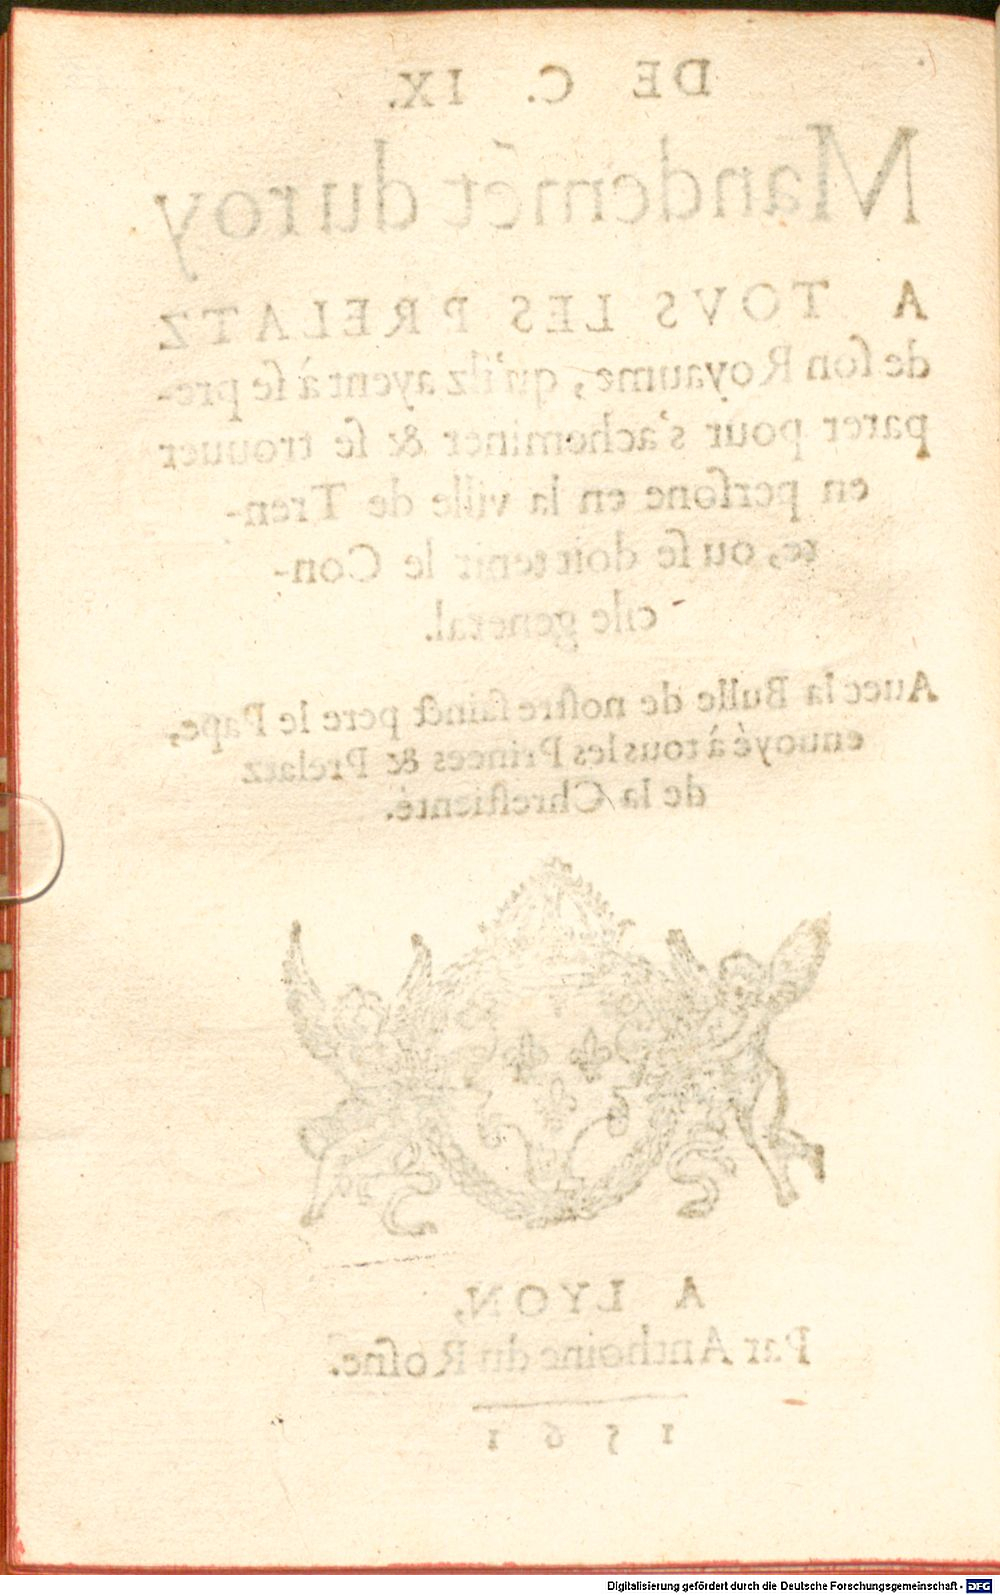 DE C. IX.
Mãdemẽt du roy
A TOVS LES PRELATZ
de ſon Royaume, qu'ilz ayent à ſe pre-
parer pour s'acheminer & ſe trouuer
en perſone en la ville de Tren-
te, ou ſe doit tenir le Con-
cile general.
Auec la Bulle de noſtre ſainct pere le Pape,
enuoyé à tous les Princes & Prelatz
de la Chreſtienté.
A LYON,
Par Anthoine du Roſne.
1561
Digitalisierung gefördert durch die Deutsche Forschungsgemeinschaft - DFG